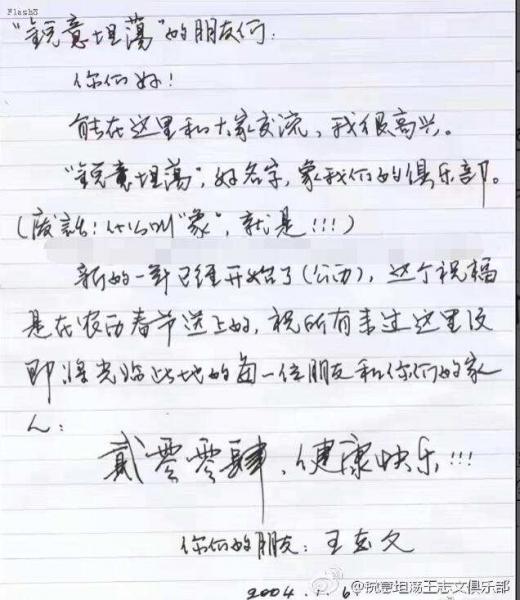 Flash3
“锐意坦荡”的朋友们:
你们好!
能在这里和大家交流，我很高兴。
“锐意坦荡”，好名字，象我们的俱乐部。
(废话!什么叫“象”，就是!!!)
新的一年已经开始了(公历)，这个祝福
是在农历春节送上的，祝所有来过这里及
即将光临此地的每一位朋友和你们的家
人:
贰零零肆，健康快乐!!!
你们的朋友:王志文
2004.1.6
@锐意坦荡王志文俱乐部